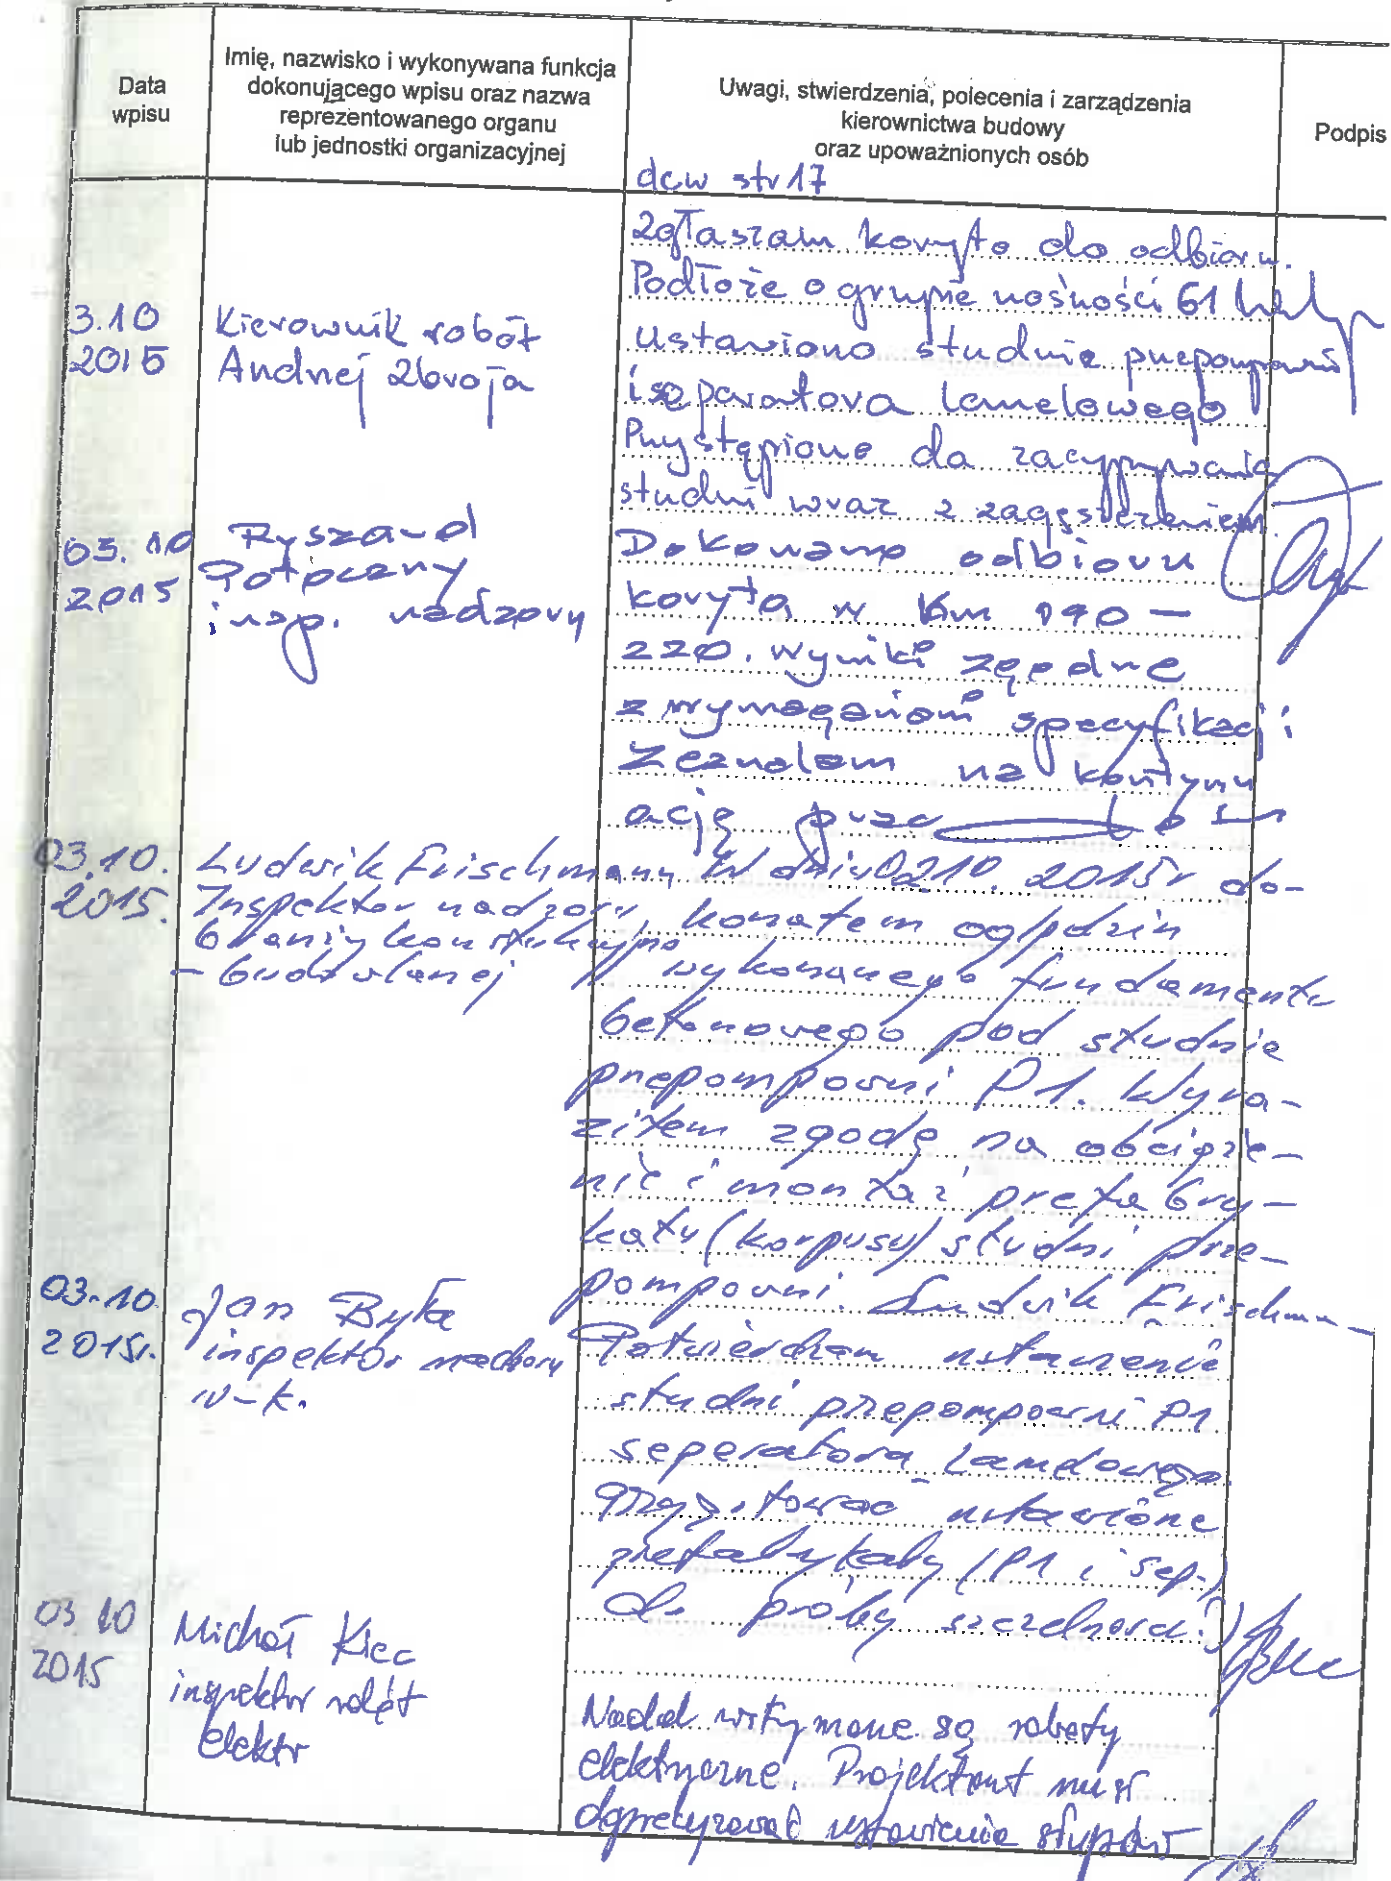 Data
wpisu
Imię, nazwisko i wykonywana funkcja
dokonującego wpisu oraz nazwa
reprezentowanego organu
lub jednostki organizacyjnej
Uwagi, stwierdzenia, polecenia i zarządzenia
kierownictwa budowy
oraz upoważnionych osób
Podpis
dcw str 17
3.10
2015
Kierownik robót
Andrzej Zbroja
zgłaszam koryto do odbioru.
Podłoże o grupie nośności G1
ustawiono studnie przepompowni
i separatora lamelowego
Przystąpiono do zasypywania
studni wraz z zagęszczeniem.
03.10
2015
Ryszard
Potoczny
insp. nadzoru
Dokonano odbioru
koryta w km 190 -
220. wyniki zgodne
z wymaganiami specyfikacji
Zezwalam na kontynu
ację prac
03.10.
2015.
Ludwik Frischmann
Inspektor nadzoru
branży konstrukcyjno
- budowlanej
W dniu 02.10.2015r do-
konałem oględzin
wykonanego fundamentu
betonowego pod studnie
przepompowni P1. Wyra-
ziłem zgodę na obciąże-
nie i montaż prefabry-
katu (korpusu) studni prze-
pompowni. Ludwik Frischmann
03.10
2015r.
Jan Była
inspektor nadzoru
w-k.
Potwierdzam ustawienie
studni przepompowni P1
seperatora Lamelowego.
Przygotować ustawione
prefabrykaty (P1 i sep.)
do próby szczelności.
03 10
2015
Michał Kiec
inspektor robót
elektr
Nadal wstrzymane są roboty
elektryczne. Projektant musi
doprecyzować ustawienie słupów